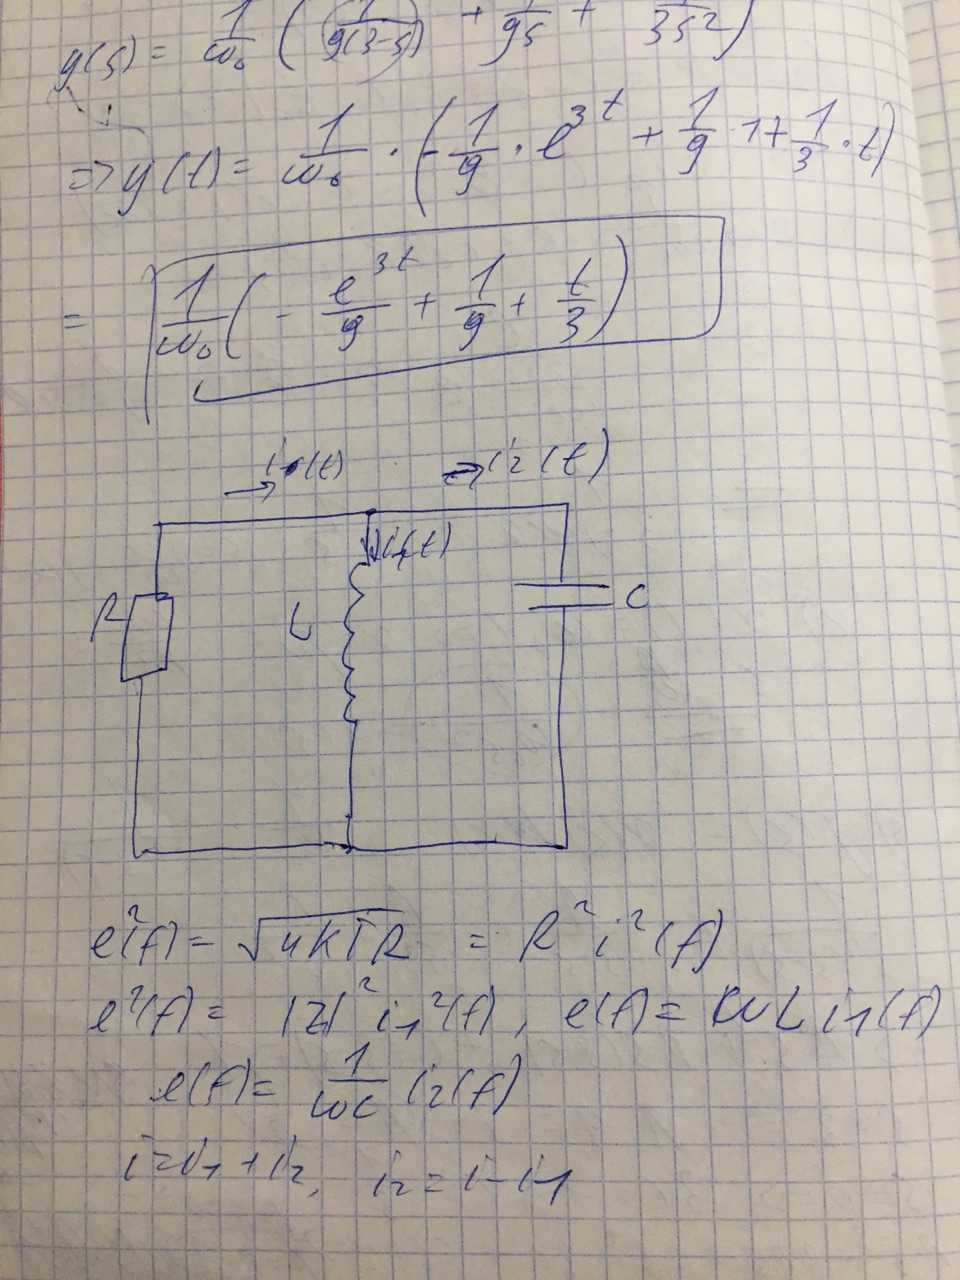 y(s) = 1/ω₀ ( 1/9(3-s) + 1/9s + 1/3s² )
=> y(t) = 1/ω₀ · ( - 1/9 · e^3t + 1/9 · 1 + 1/3 · t )
= 1/ω₀ ( - e^3t/9 + 1/9 + t/3 )
i(t) → i₂(t)
i₁(t)
R L C
e²(f) = √4KTR = R² i²(f)
e²(f) = |Z|² i₁²(f), e(f) = ωL i₁(f)
e(f) = 1/ωC i₂(f)
i = i₁ + i₂, i₂ = i - i₁